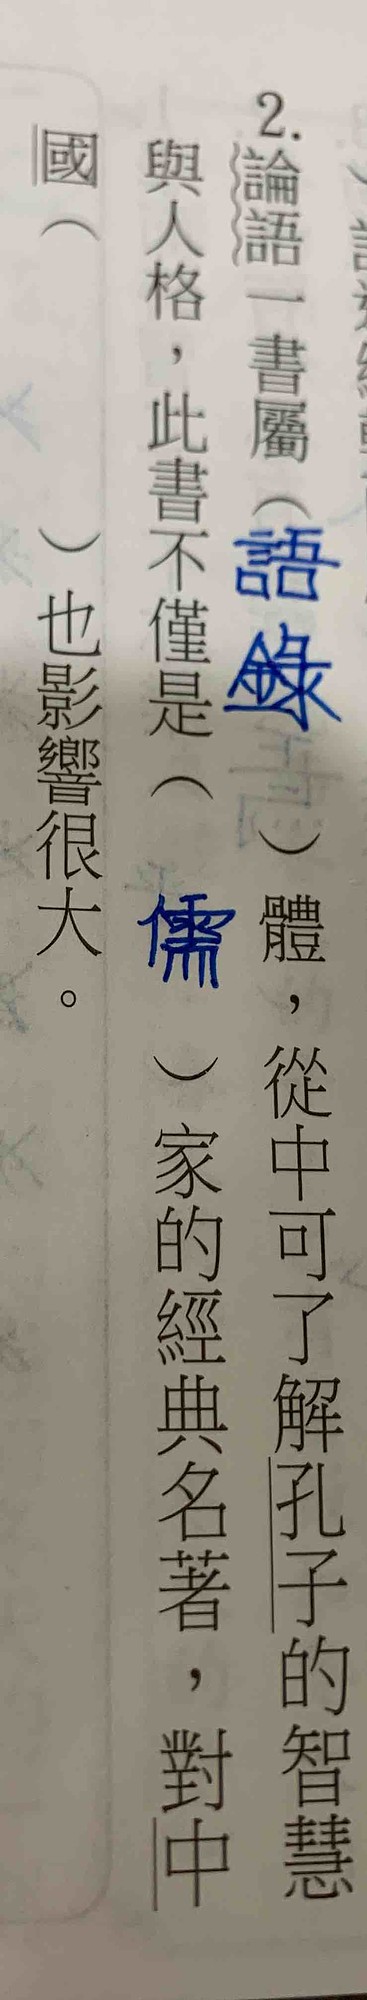 2.論語一書屬（語錄）體，從中可了解孔子的智慧
與人格，此書不僅是（儒）家的經典名著，對中
國（　　　）也影響很大。